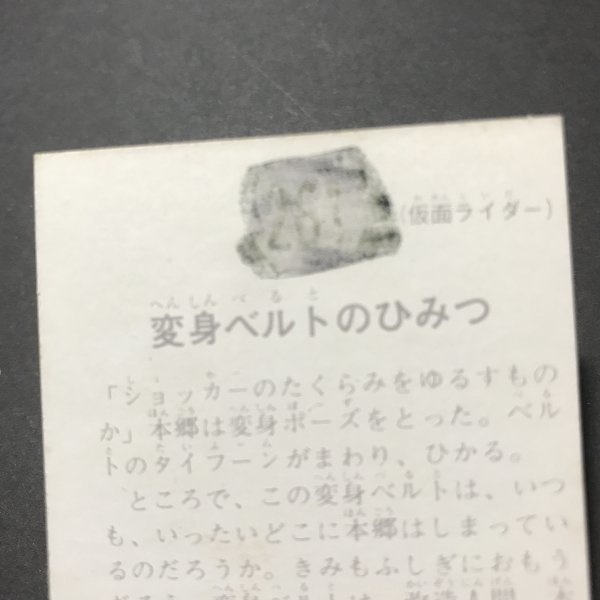 (仮面ライダー)
変身ベルトのひみつ
「ショッカーのたくらみをゆるすもの
か」本郷は変身ポーズをとった。ベル
トのタイフーンがまわり、ひかる。
ところで、この変身ベルトは、いつ
も、いったいどこに本郷はしまってい
るのだろうか。きみもふしぎにおもう